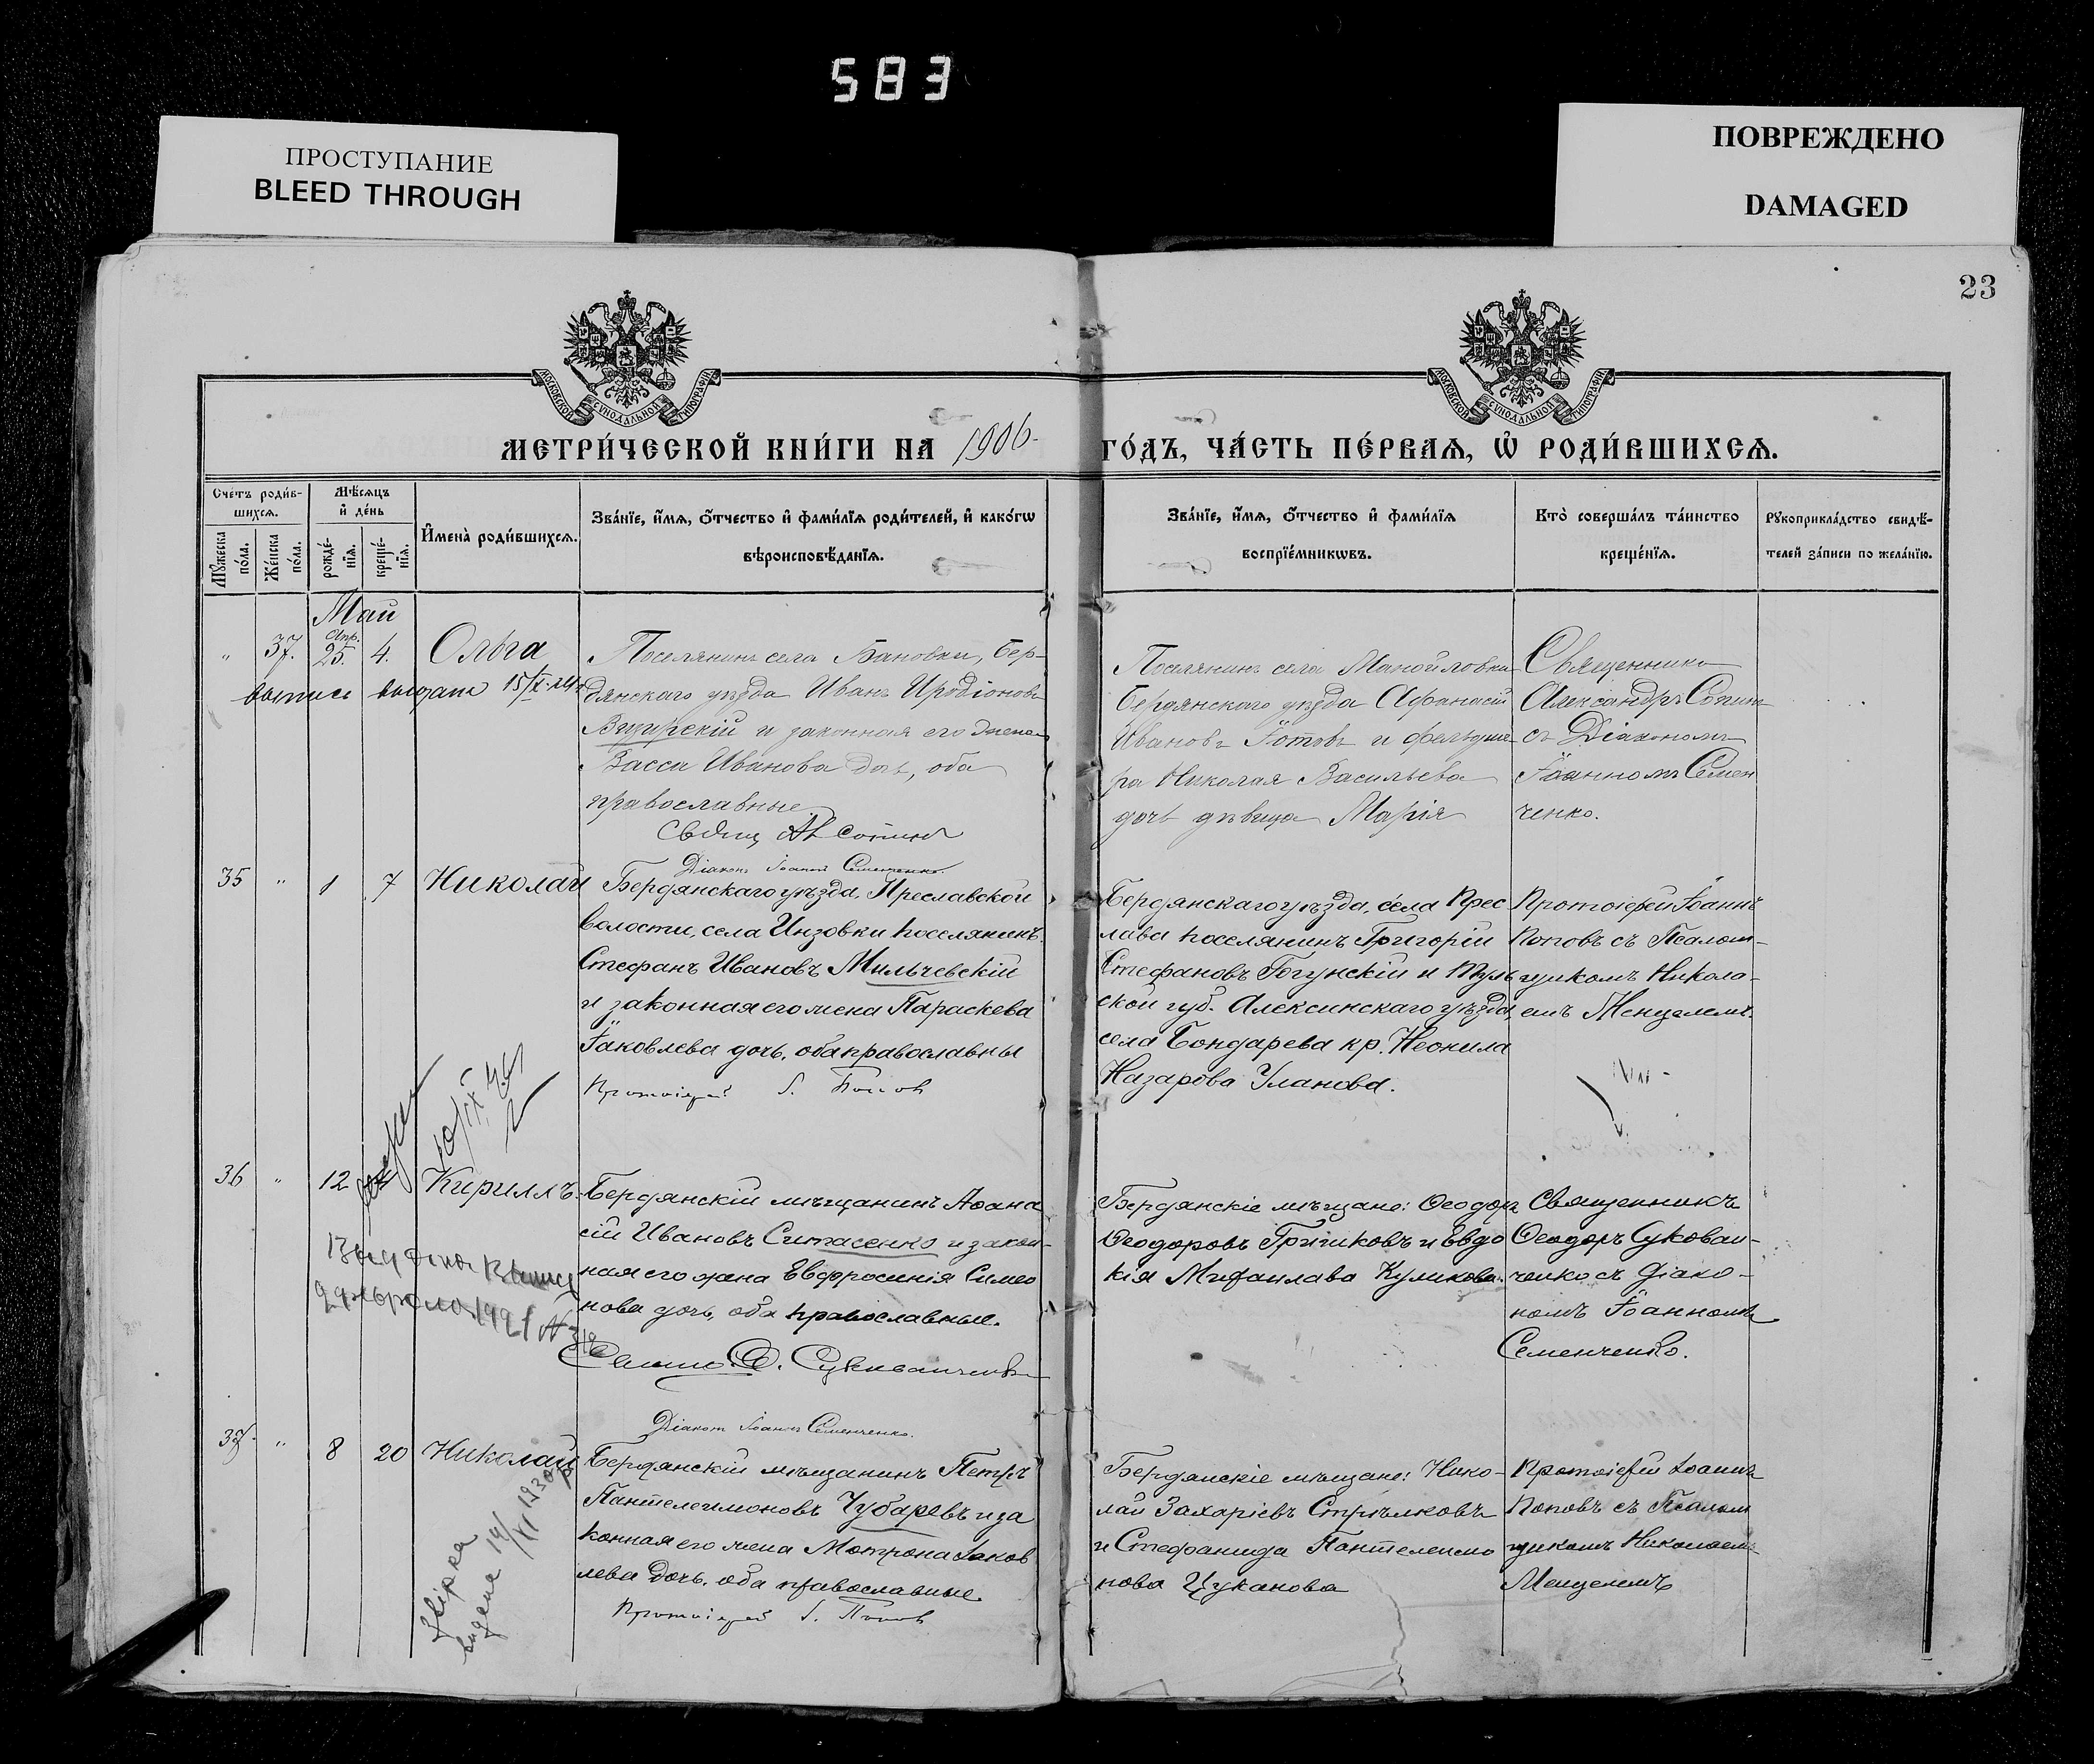 583
ПРОСТУПАНИЕ
BLEED THROUGH
ПОВРЕЖДЕНО
DAMAGED
23
МОСКОВСКОЙ СѴНОДАЛЬНОЙ ТИПОГРАФІИ
МОСКОВСКОЙ СѴНОДАЛЬНОЙ ТИПОГРАФІИ
МЕТРИ́ЧЕСКОЙ КНИ́ГИ НА 1906
ГО́ДЪ, ЧА́СТЬ ПЕ́РВАѦ, Ѽ РОДИ́ВШИХСѦ.
Счетъ роди́в-
шихсѧ.
Мѣ́сѧцъ
и҆ де́нь
Мꙋ́жеска
по́ла.
Же́нска
по́ла.
рожде́-
нїѧ.
креще́-
нїѧ.
И҆мена̀ роди́вшихсѧ.
Зва́нїе, и҆́мѧ, ѻ҆́тчество и҆ фами́лїѧ роди́телей, и҆ како́гѡ
вѣроисповѣ́данїѧ.
Зва́нїе, и҆́мѧ, ѻ҆́тчество и҆ фами́лїѧ
воспрїе́мникѡвъ.
Кто̀ соверша́лъ та́инство
креще́нїѧ.
Рꙋкоприкла́дство свидѣ́-
телей за́писи по жела́нїю.
Май
Апр.
" 37. 25. 4. Ольга
выпись выдана 15/X-24
Поселянинъ села Бановки, Бер-
дянскаго уѣзда Иванъ Иродіоновъ
и законная его жена
Васса Иванова дочь, оба
православные
Діаконъ Іоаннъ Семенченко.
Поселянинъ села Мануйловки
Бердянскаго уѣзда Афанасій
Ивановъ Іотовъ и фельдше
ра Николая Васильева
дочь дѣвица Марія
Священникъ
Александръ
съ Діакономъ
Іоанномъ Семен
ченко.
35 " 1 7 Николай
Бердянскаго уѣзда, Преславской
волости, села Инзовки поселянинъ
Стефанъ Ивановъ Мильчевскій
и законная его жена Параскева
Іаковлева дочь, оба православны
Протоіерей І. Попов
Бердянскаго уѣзда, села Прес
лава поселянинъ Григорій
Стефановъ Гогунскій и Туль
ской губ. Алексинскаго уѣзда,
села Бондарева кр. Неонила
Назарова Уланова.
Протоіерей Іоаннъ
Поповъ съ Псалом-
щикомъ Никола-
емъ Менцелемъ.
36 " 12 Кириллъ
Бердянскій мѣщанинъ Аѳана
сій Ивановъ Ситасенко и закон-
ная его жена Евфросинія Симео
нова дочь, оба православные.
Діаконъ Іоаннъ Семенченко.
Бердянскіе мѣщане: Ѳеодоръ
Ѳеодоровъ Гришковъ и Евдо
кія Михаилова Куликова.
Священникъ
Ѳеодоръ Сукован-
ченко съ діако-
номъ Іоанномъ
Семенченко.
37. " 8 20 Николай
Бердянскій мѣщанинъ Петръ
Пантелеимоновъ Чубаревъ и за
конная его жена Мотрона Іаков
лева дочь, оба православные
Протоіерей І. Попов
Бердянскіе мѣщане: Нико-
лай Захаріевъ Стрѣлковъ
и Стефанида Пантелеимо
нова Цуканова
Протоіерей Іоаннъ
Поповъ съ Псалом
щикомъ Николаемъ
Менцелемъ